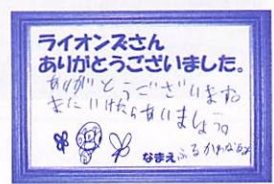 ライオンズさん
ありがとうございました。
ありがとうございます。
またいけたらあいましょう。
なまえ ふるかわ